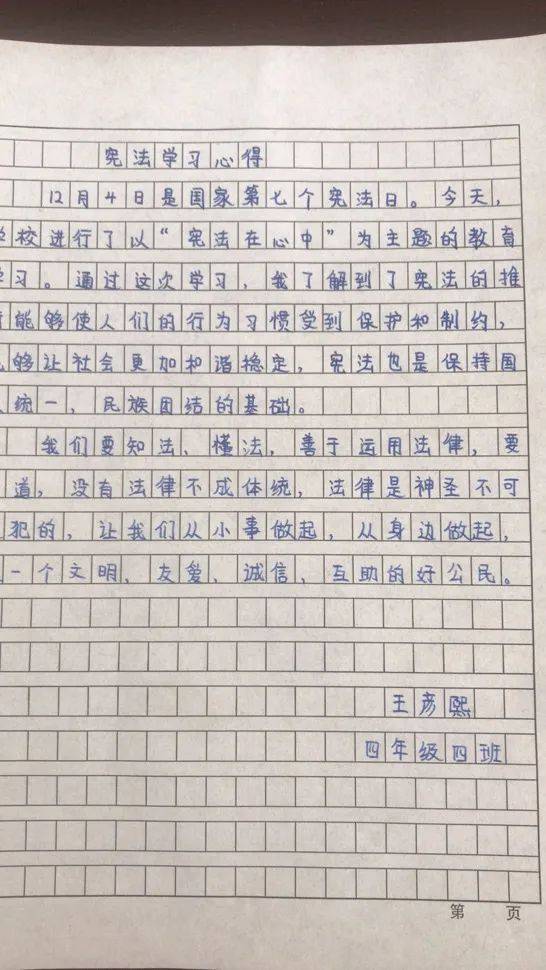 宪法学习心得
12月4日是国家第七个宪法日。今天，
学校进行了以“宪法在心中”为主题的教育
学习。通过这次学习，我了解到了宪法的推
能够使人们的行为习惯受到保护和制约，
够让社会更加和谐稳定，宪法也是保持国
统一，民族团结的基础。
我们要知法、懂法，善于运用法律，要
道，没有法律不成体统，法律是神圣不可
犯的，让我们从小事做起，从身边做起，
一个文明、友爱、诚信、互助的好公民。
王彦熙
四年级四班
第 页